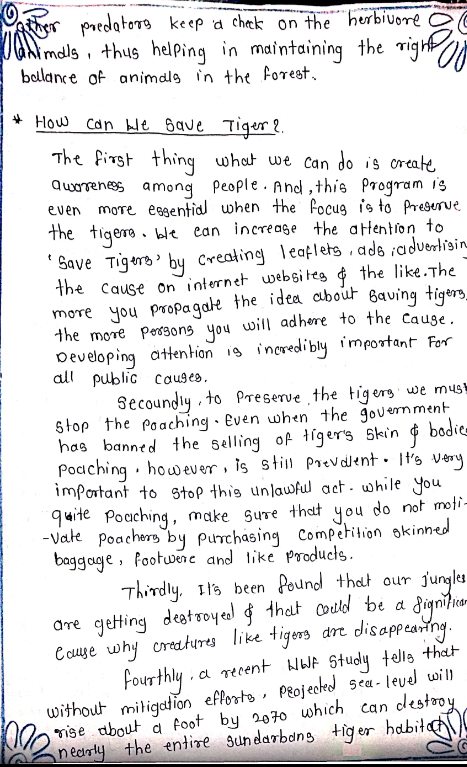 other predators keep a check on the herbivore
animals, thus helping in maintaining the right
ballance of animals in the forest.
* How can We Save Tiger?
The first thing what we can do is create
awareness among People. And, this Program is
even more essential when the focus is to Preserve
the tigers. We can increase the attention to
'Save Tigers' by creating leaflets, ads, advertisin
the cause on internet websites & the like. The
more you propagate the idea about Saving tigers,
the more Persons you will adhere to the Cause.
Developing attention is incredibly important For
all public causes.
Secoundly, to Preserve the tigers we must
Stop the Poaching. Even when the government
has banned the selling of tiger's Skin & bodies
Poaching, however, is still Prevalent. It's very
important to stop this unlawful act. While you
quite Poaching, make sure that you do not moti-
-vate Poachers by Purchasing Competition skinned
baggage, footwere and like Products.
Thirdly, It's been found that our jungles
are getting destroyed & that could be a Significan
Cause why creatures like tigers are disappearing.
fourthly, a recent WWF Study tells that
without mitigation efforts, Projected sea-level will
rise about a foot by 2070 which can destroy
nearly the entire Sundarbans tiger habitat